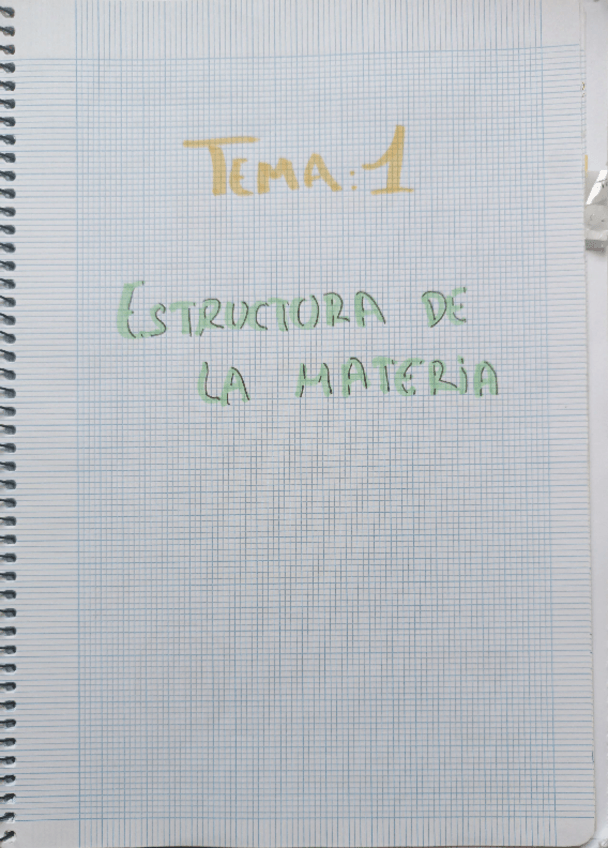 TEMA: 1
ESTRUCTURA DE
LA MATERIA